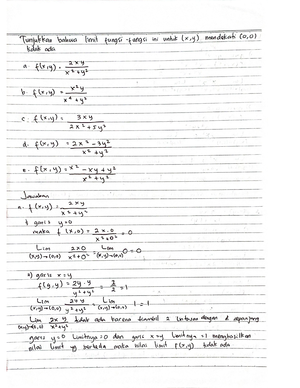 Tunjukkan bahwa limit fungsi-fungsi ini untuk (x,y) mendekati (0,0)
tidak ada
a. f(x,y) = 2xy / x² + y²
b. f(x,y) = x²y / x⁴ + y²
c. f(x,y) = 3xy / 2x² + 5y²
d. f(x,y) = 2x² - 3y² / x² + y²
e. f(x,y) = x² - xy + y² / x² + y²
Jawaban
a. f(x,y) = 2xy / x² + y²
garis y=0
maka f(x,0) = 2x.0 / x²+0² = 0
Lim (x,y)→(0,0) 2x0 / x²+0² = Lim (x,y)→(0,0) 0 = 0
garis x=y
f(y,y) = 2y.y / y²+y² = 2/2 = 1
Lim (x,y)→(0,0) 2yy / y²+y² = Lim (x,y)→(0,0) 1 = 1
Lim (x,y)→(0,0) 2xy / x²+y² tidak ada karena 2 sepanjang
garis y=0 limitnya=0 dan garis x=y limitnya=1 menghasilkan
nilai limit yg berbeda maka nilai limit f(x,y) tidak ada